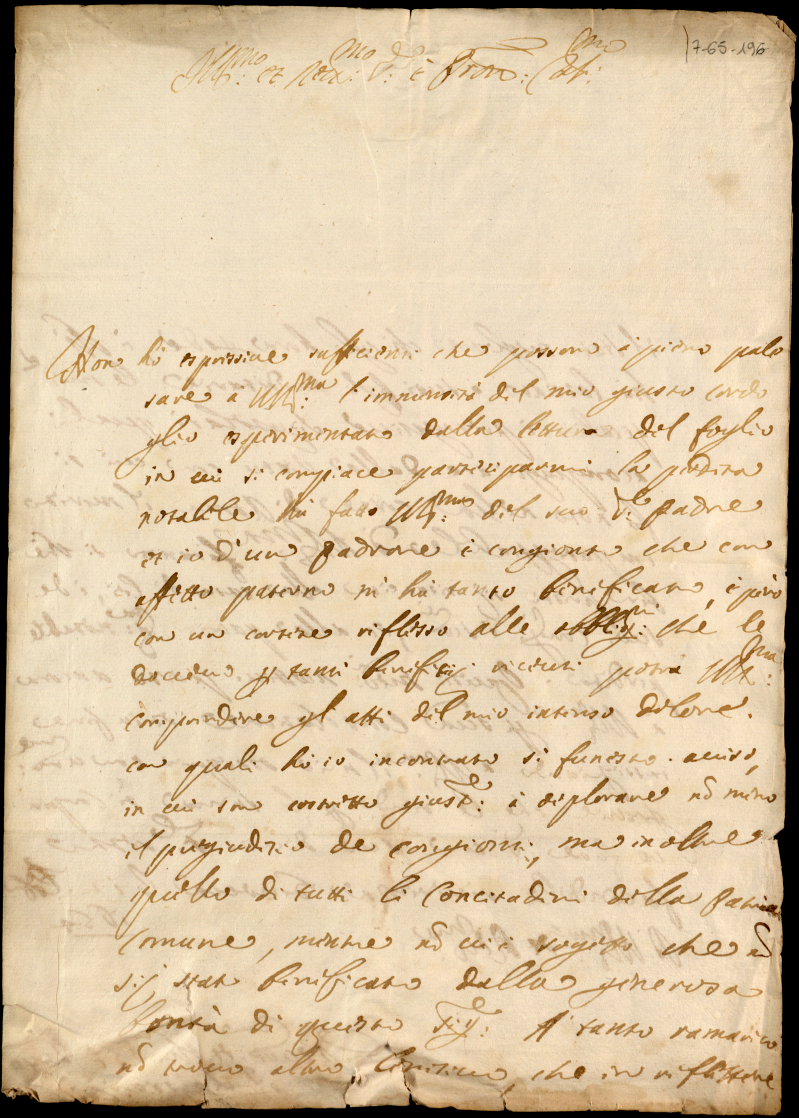 7-65-196
Ill:mo et Rev:mo S:re è Pron: Col:mo
Non hò espressive sufficienti che possono à pieno pale
sare à VS Ill:ma l'immensità del mio giusto cordo
glio esperimentato dalla lettura del foglio
in cui si compiace parteciparmi la perdita
notabile hà fatto VS Ill:ma del suo S:re Padre
et io d'un Padrone è congionto che con
affetto paterno m'hà tanto benificato, è però
con un cortese riflesso alle obblig:ni che le
doveva p tanti benefitij riceuti potrà VS Ill:ma
comprendere gl'atti del mio intenso dolore.
con quali hò io incontrato si funesto auiso,
in cui son costretto giust:e à deplorare nō meno
il pregiudizio de congionti, ma inoltre
quello di tutti li Concitadini della Patria
Comune, mentre nō ui è sogetto che nō
sij stato benificato dalla generosa
bontà di questo Sig:re A tanto ramarico
nō trouo altro che in riflettere